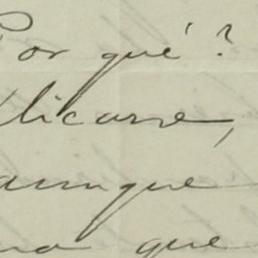 Por qué?
licarse,
aunque
no que